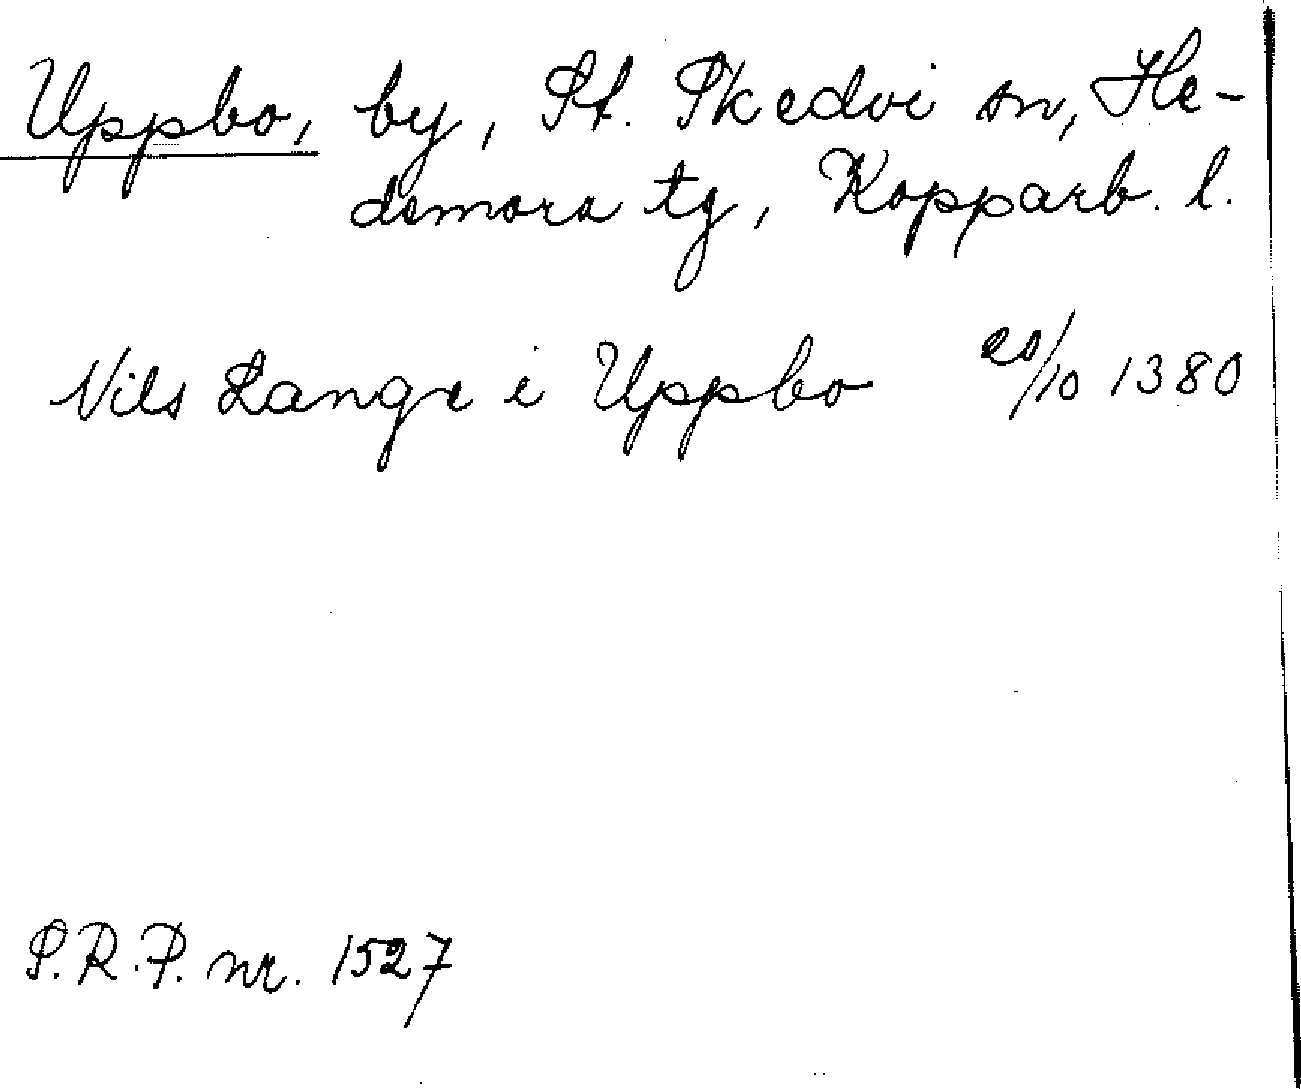 Uppbo, by, St. Skedvi sn, He-
demora tg, Kopparb. l.
Nils Lange i Uppbo 20/10 1380
S.R.P. nr. 1527